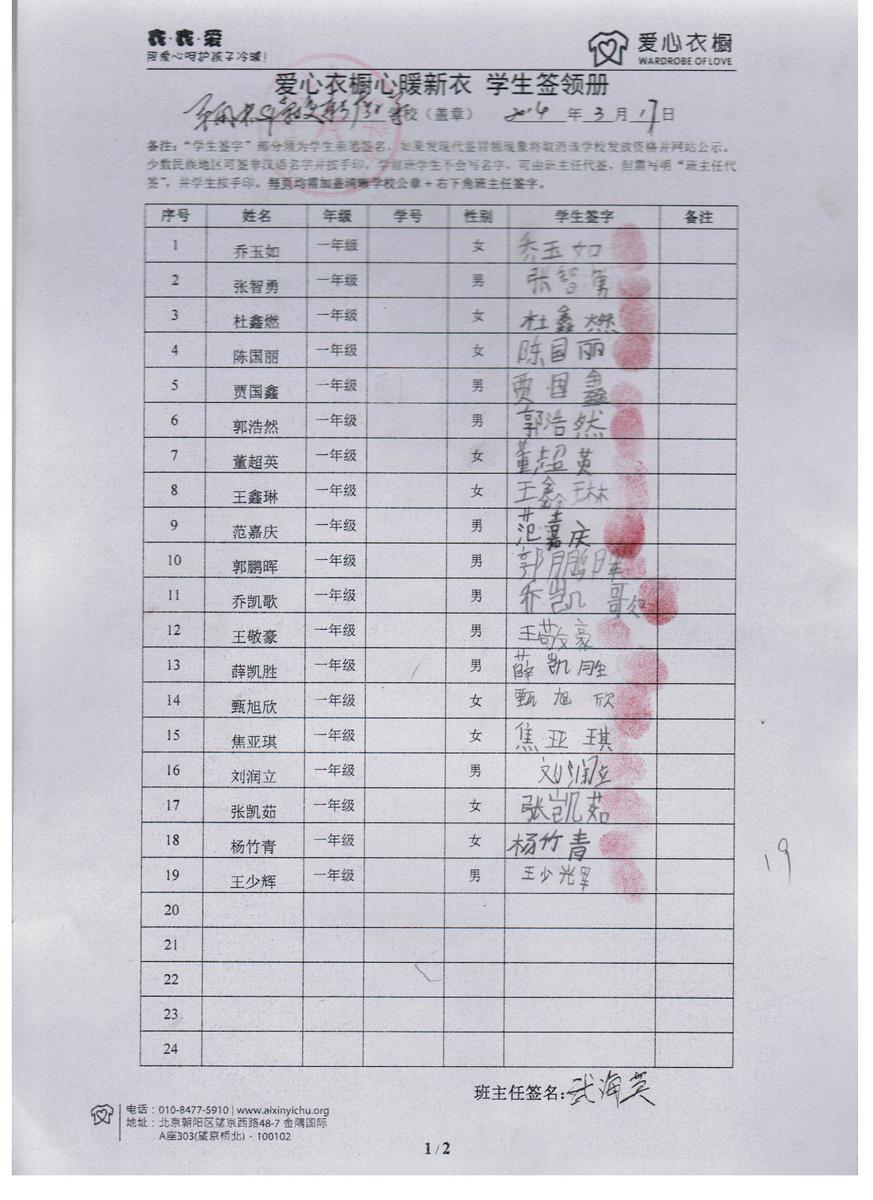 衣·衣·爱
用爱心呵护孩子冷暖!
爱心衣橱
WARDROBE OF LOVE
爱心衣橱心暖新衣 学生签领册
学校（盖章） 2014 年 3 月 17 日
备注：“学生签字”部分须为学生亲笔签名，如果发现代签冒领现象将取消该学校发放资格并网站公示。
少数民族地区可签非汉语名字并按手印，学前班学生不会写名字，可由班主任代签，但需写明“班主任代
签”，并学生按手印。每页均需加盖清晰学校公章+右下角班主任签字。
序号 姓名 年级 学号 性别 学生签字 备注
1 乔玉如 一年级 女 乔玉如
2 张智勇 一年级 男 张智勇
3 杜鑫燃 一年级 女 杜鑫燃
4 陈国丽 一年级 女 陈国丽
5 贾国鑫 一年级 男 贾国鑫
6 郭浩然 一年级 男 郭浩然
7 董超英 一年级 女 董超英
8 王鑫琳 一年级 女 王鑫琳
9 范嘉庆 一年级 男 范嘉庆
10 郭鹏晖 一年级 男 郭鹏晖
11 乔凯歌 一年级 男 乔凯歌
12 王敬豪 一年级 男 王敬豪
13 薛凯胜 一年级 男 薛凯胜
14 甄旭欣 一年级 女 甄旭欣
15 焦亚琪 一年级 女 焦亚琪
16 刘润立 一年级 男 刘润立
17 张凯茹 一年级 女 张凯茹
18 杨竹青 一年级 女 杨竹青
19 王少辉 一年级 男 王少辉
19
20
21
22
23
24
班主任签名：武海英
电话：010-8477-5910 | www.aixinyichu.org
地址：北京朝阳区望京西路48-7 金隅国际
A座303(望京桥北) · 100102
1 / 2